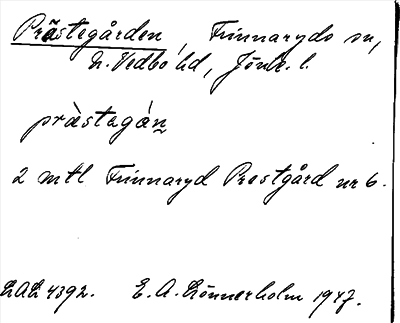 Prästegården, Frinnaryds sn,
N. Vedbo hd, Jönk. l.
prästagán
2 mtl Frinnaryd Prostgård nr 6.
LAL 4392. E. A. Lönnerholm 1947.